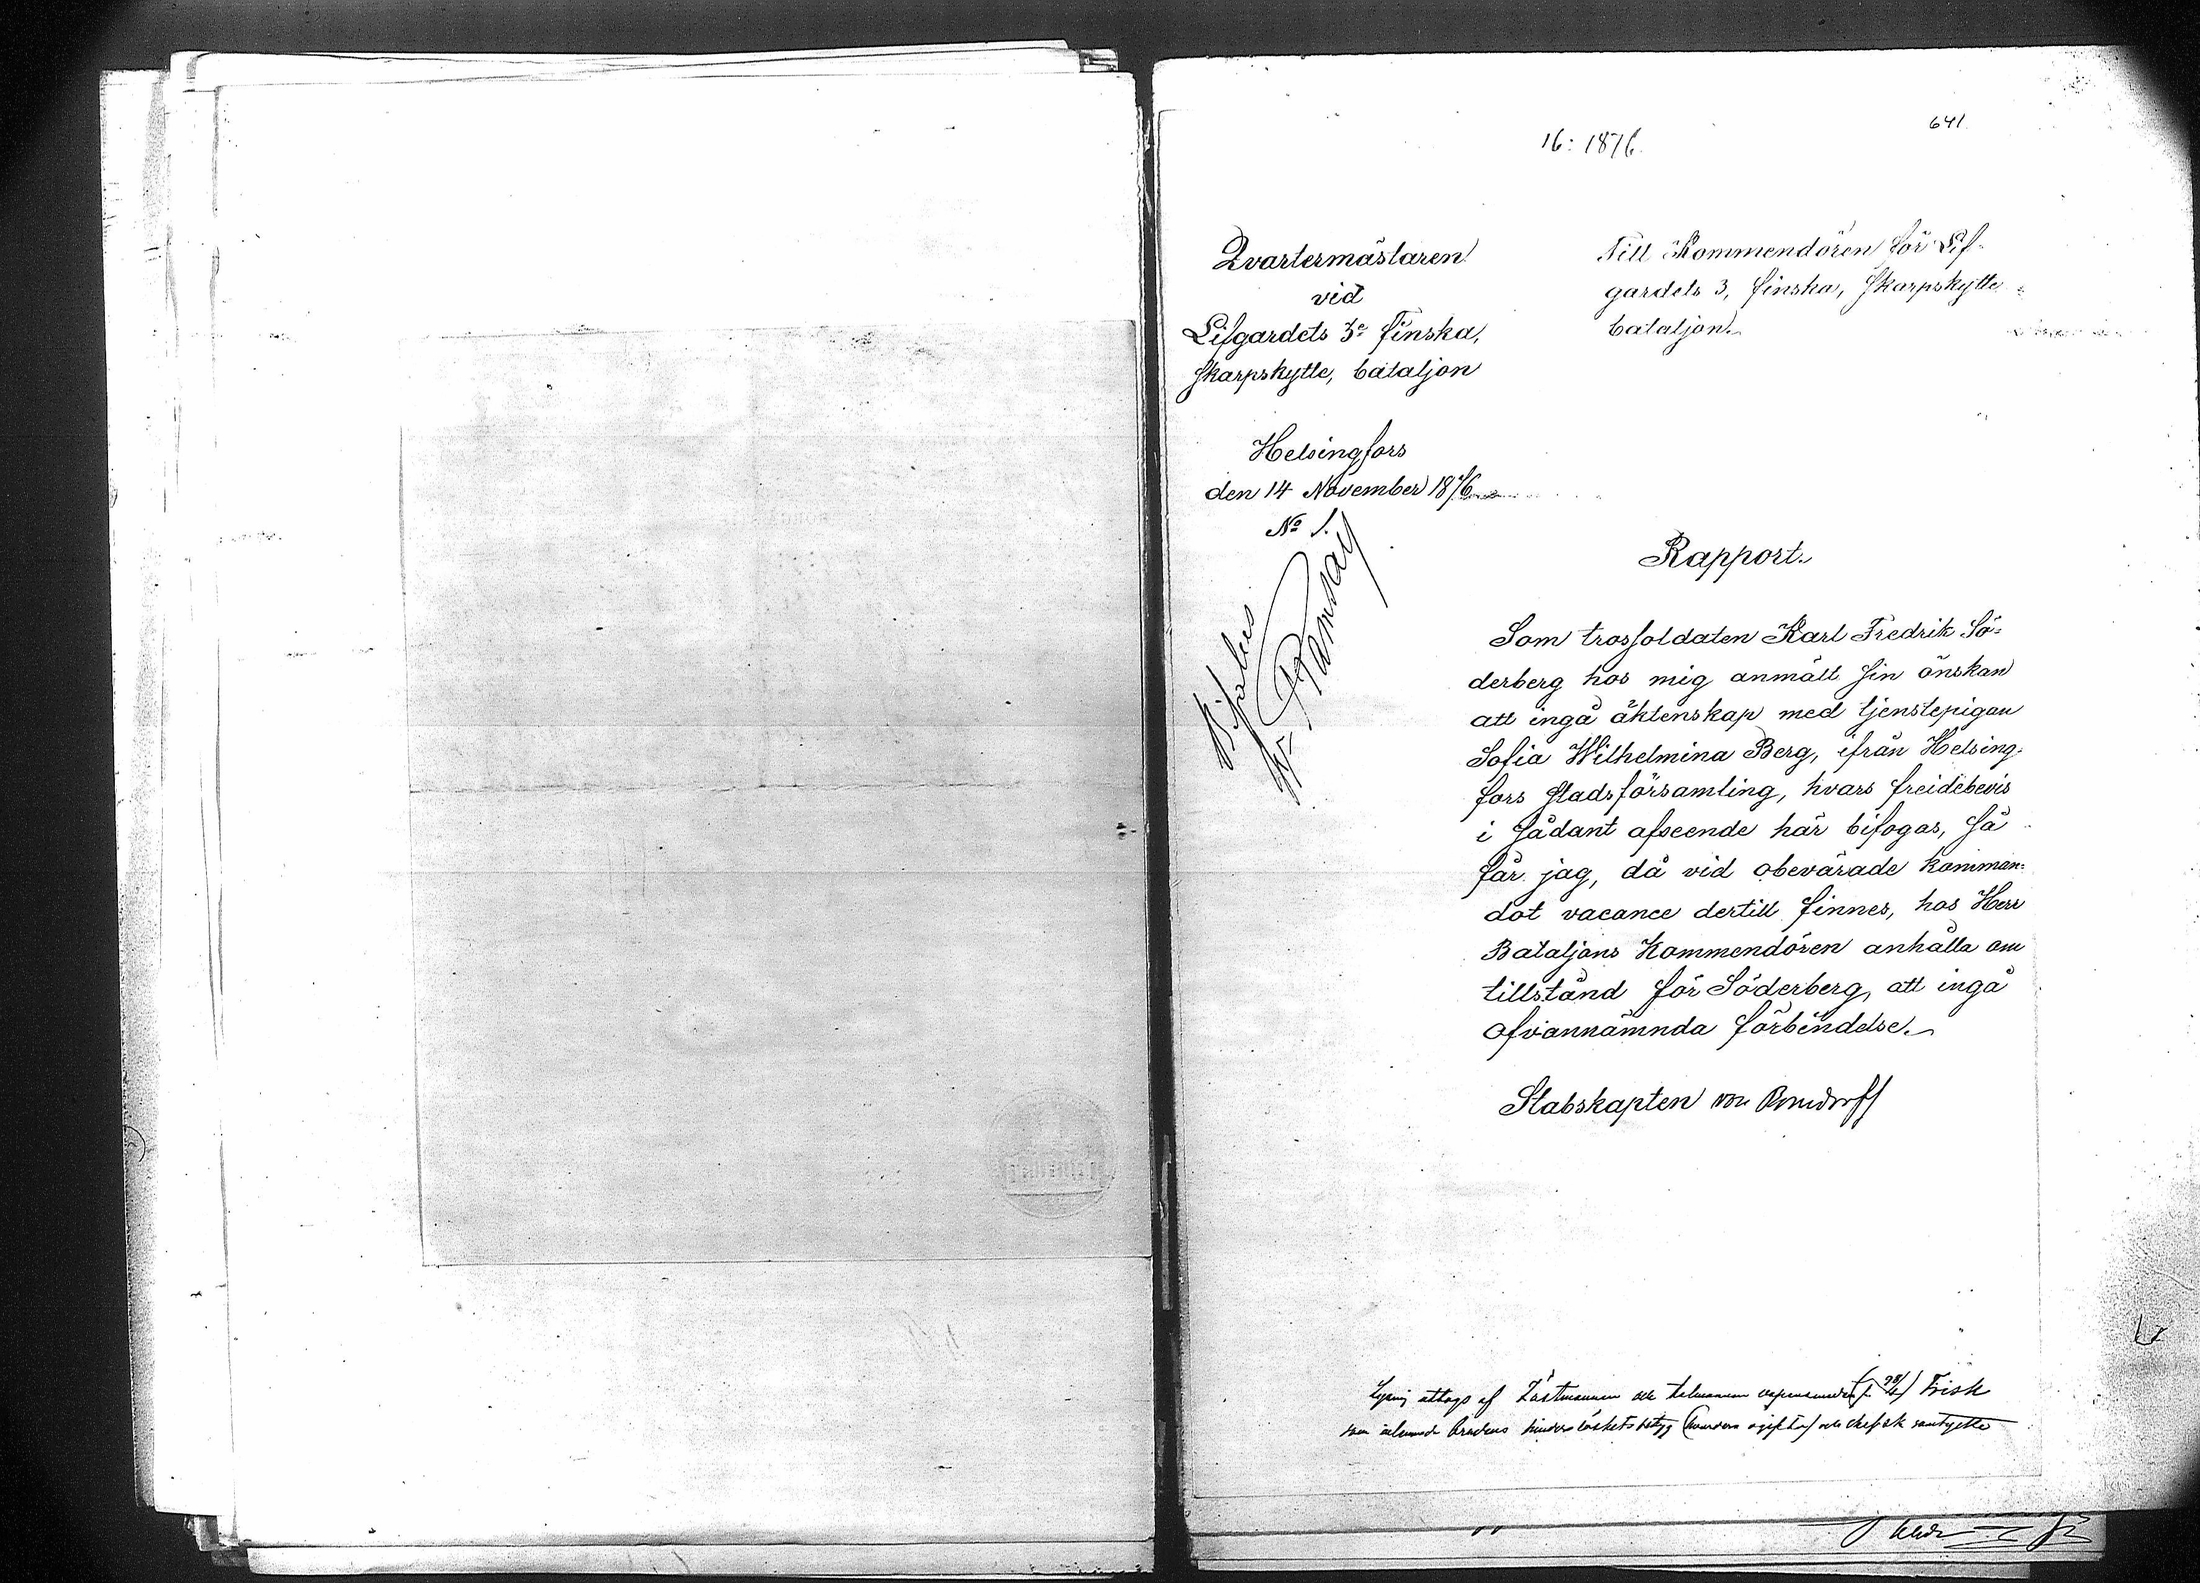 641
16: 1876.
Qvartermästaren
vid
Lifgardets 3e finska,
skarpskytte, bataljon
Helsingfors
den 14 November 1876
No 1.
Bifalles
Ramsay
Till Kommendören för Lif-
gardets 3, finska, skarpskytte
bataljon.
Rapport.
Som trossoldaten Karl Fredrik Sö-
derberg hos mig anmält sin önskan
att ingå äktenskap med tjenstepigan
Sofia Wilhelmina Berg, ifrån Helsing-
fors stadsförsamling, hvars freidebevis
i sådant afseende här bifogas, så
får jag, då vid obevärade komman-
dot vacance dertill finnes, hos Herr
Bataljons Kommendören anhålla om
tillstånd för Söderberg, att ingå
ofvannämnda förbindelse.
Stabskapten von
Lysning uttogs af Trästmannen och
Frisk
som brudens hinderslöshetsbetyg och skriftlig samtycke